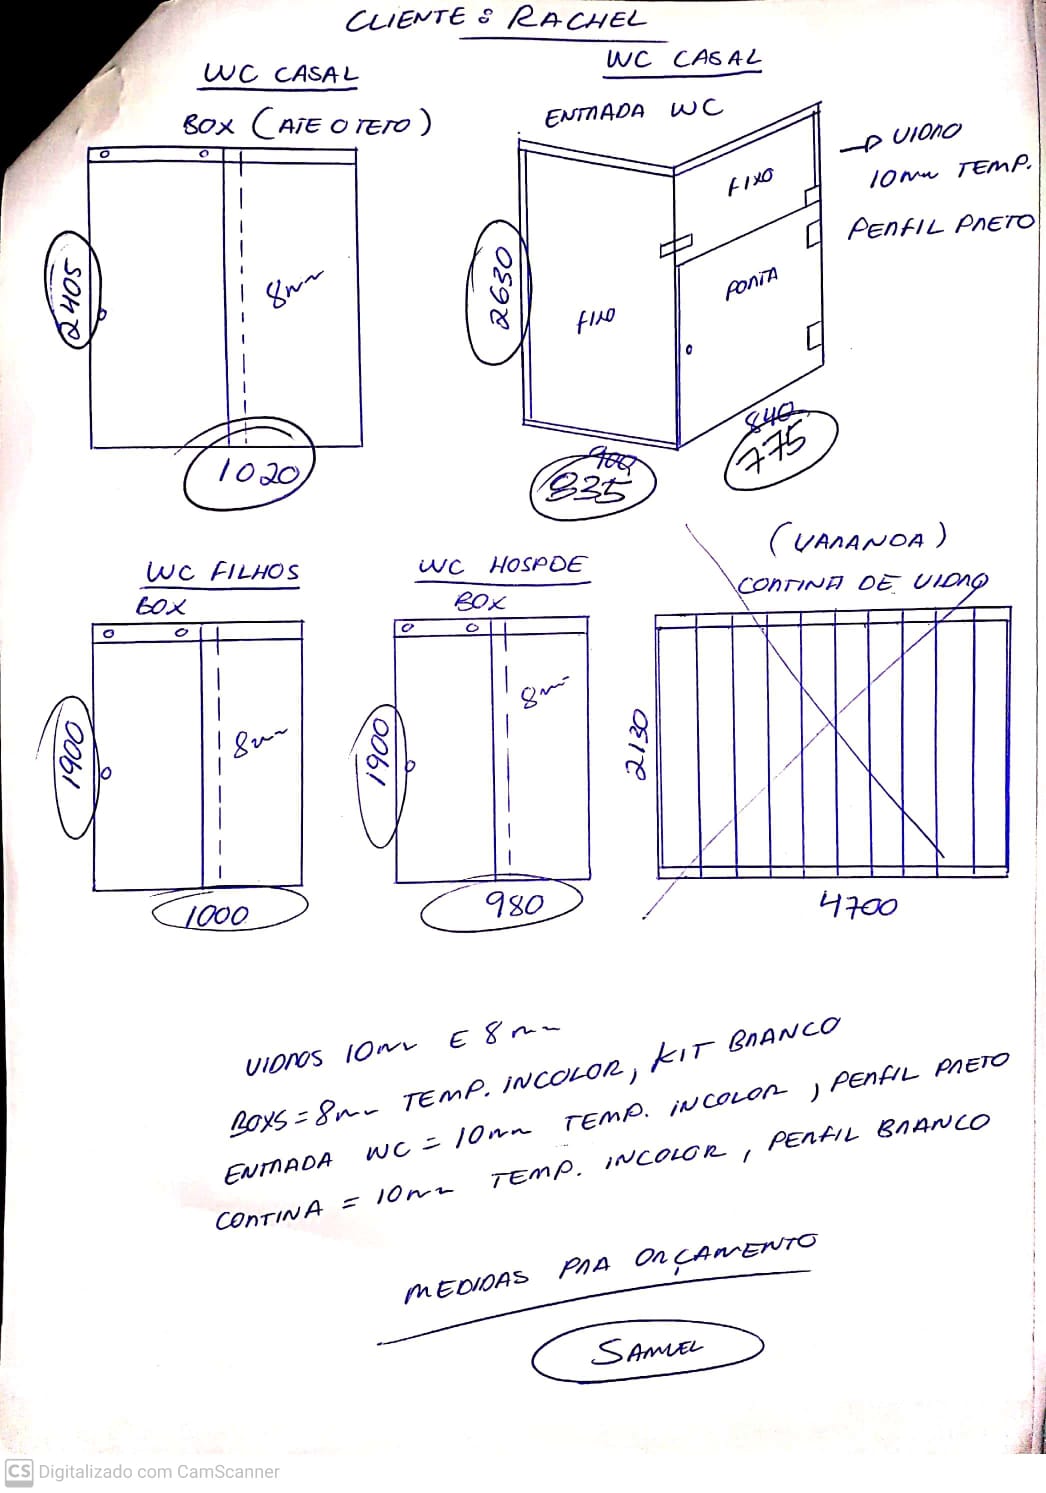 CLIENTE: RACHEL
WC CASAL
BOX (ATE O TETO)
2405
8mm
1020
WC CASAL
ENTRADA WC
→ VIDRO
10mm TEMP.
PERFIL PRETO
2630
FIXO
FIXO
PORTA
900
835
840
775
WC FILHOS
BOX
1900
8mm
1000
WC HOSPDE
BOX
1900
8mm
980
(VARANDA)
CORTINA DE VIDRO
2130
4700
VIDROS 10mm E 8mm
BOXS = 8mm TEMP. INCOLOR, KIT BRANCO
ENTRADA WC = 10mm TEMP. INCOLOR, PERFIL PRETO
CORTINA = 10mm TEMP. INCOLOR, PERFIL BRANCO
MEDIDAS PRA ORÇAMENTO
SAMUEL
CS Digitalizado com CamScanner